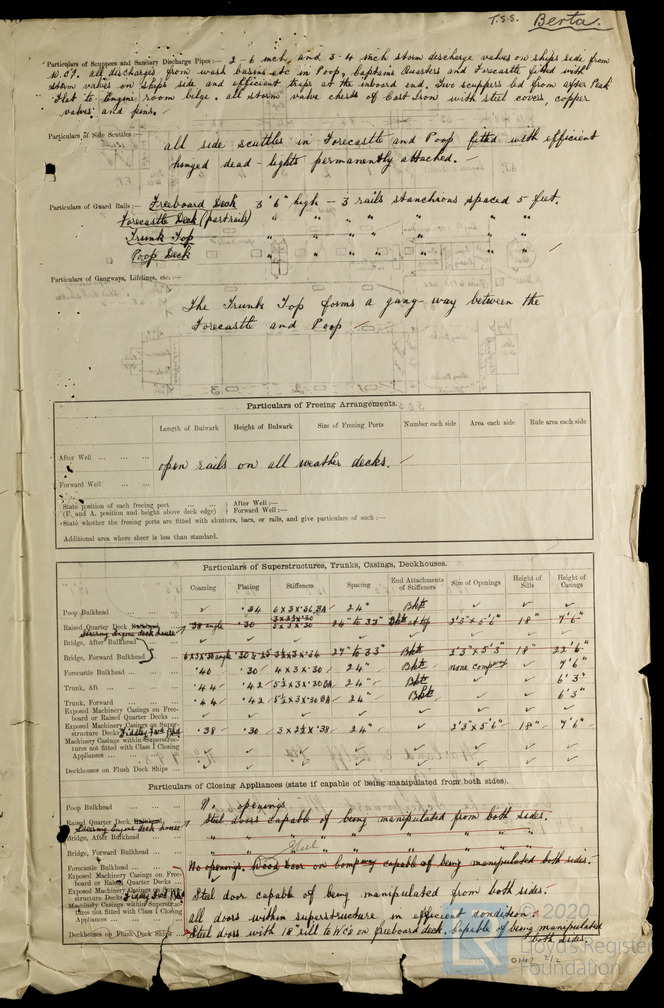 T.S.S. Berta.
Particulars of Scuppers and Sanitary Discharge Pipes:— 2-6 inch, and 3-4 inch storm discharge valves on ships side from
W.C's. all discharges from wash basins etc in Poop, Captains Quarters and Forecastle fitted with
storm valves on ships side and efficient traps at the inboard end. Two scuppers led from after Peak
Flat to Engine room bilge. all storm valve chests of Cast Iron with steel covers, copper
valves and pins.
Particulars of Side Scuttles:— all side scuttles in Forecastle and Poop fitted with efficient
hinged dead-lights permanently attached.
Particulars of Guard Rails:— Freeboard Deck 3' 6" high - 3 rails stanchions spaced 5 feet.
Forecastle Deck (part rails) " " " " " " "
Trunk Top " " " " " " "
Poop Deck " " " " " " "
Particulars of Gangways, Lifelines, etc.:—
The Trunk Top forms a gang-way between the
Forecastle and Poop
Particulars of Freeing Arrangements.
Length of Bulwark Height of Bulwark Size of Freeing Ports Number each side Area each side Rule area each side
After Well ... ... ...
open rails on all weather decks.
Forward Well ... ...
State position of each freeing port ... ... ... After Well:—
(F. and A. position and height above deck edge) Forward Well:—
State whether the freeing ports are fitted with shutters, bars, or rails, and give particulars of such:—
Additional area where sheer is less than standard.
Particulars of Superstructures, Trunks, Casings, Deckhouses.
Coaming Plating Stiffeners Spacing End Attachments of Stiffeners Size of Openings Height of Sills Height of Casings
Poop Bulkhead ... ... ✓ .34 6 x 3 x .36 BA 24" Bkts ✓ ✓ ✓
Raised Quarter Deck Bulkhead 38 angle .30 3 x 3 x .30 24" to 33" Bkts at top 3'3" x 5'6" 18" 7'6"
Steering Engine deck house
Bridge, After Bulkhead
Bridge, Forward Bulkhead 27" to 33" Bkts 2'3" x 5'3" 18" 22'6"
Forecastle Bulkhead ... .40 .30 4 x 3 x .30 24" Bkts none 7'6"
Trunk, Aft ... ... .44 .42 5½ x 3 x .30 BA 24" Bkts ✓ ✓ 6'3"
Trunk, Forward ... .44 .42 5½ x 3 x .30 BA 24" Bkts ✓ ✓ 6'3"
Exposed Machinery Casings on Freeboard or Raised Quarter Decks ...
Exposed Machinery Casings on Superstructure Decks Fiddley Fwd Bhd .38 .30 3 x 2½ x .38 24" ✓ 3'3" x 5'6" 18" 7'6"
Machinery Casings within Superstructures not fitted with Class 1 Closing
Appliances ... ... ...
Deckhouses on Flush Deck Ships ...
Particulars of Closing Appliances (state if capable of being manipulated from both sides).
Poop Bulkhead ... ... ... No openings
Raised Quarter Deck Bulkhead Steel doors capable of being manipulated from both sides.
Steering Engine deck house
Bridge, After Bulkhead ... " " " " " " "
Bridge, Forward Bulkhead ... Steel
Forecastle Bulkhead ... No openings. Wood Door on Compway capable of being manipulated both sides.
Exposed Machinery Casings on Freeboard or Raised Quarter Decks ...
Exposed Machinery Casings on Superstructure Decks Fiddley Fwd Bhd Steel door capable of being manipulated from both sides.
Machinery Casings within Superstructures not fitted with Class 1 Closing Appliances ... all doors within superstructure in efficient condition.
Deckhouses on Flush Deck Ships ... Steel doors with 18" sill to WC's on freeboard deck. Capable of being manipulated
both sides.
© 2020
Lloyd's Register
Foundation
0147 2/2